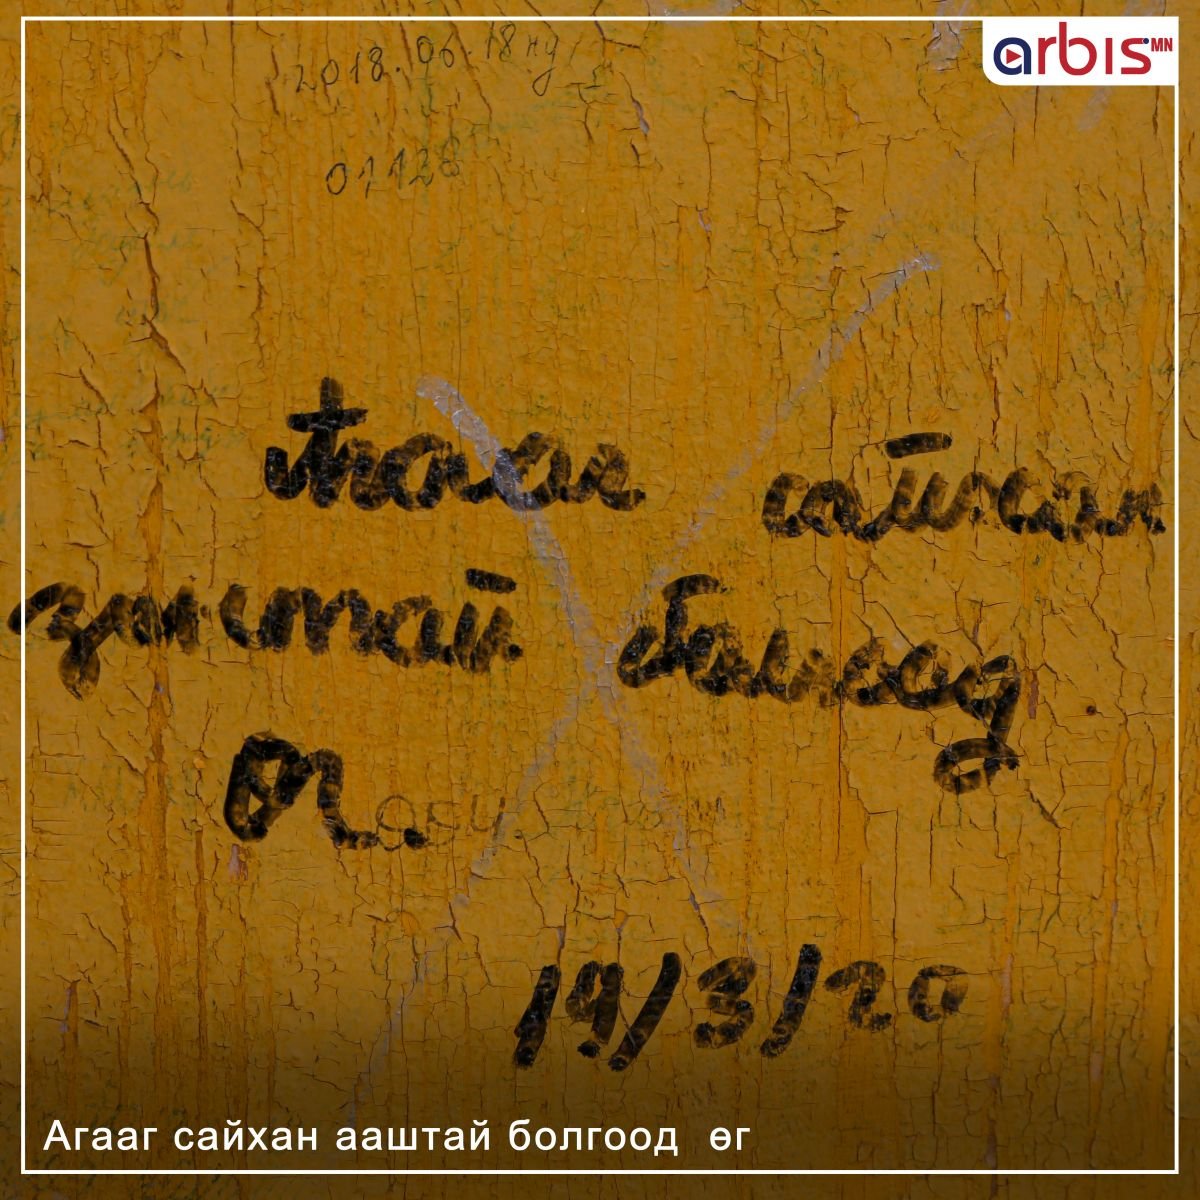 arbis MN
2018.06.18
01128
сайхан
болгоод
өг.
19/3/20
Агааг сайхан ааштай болгоод өг